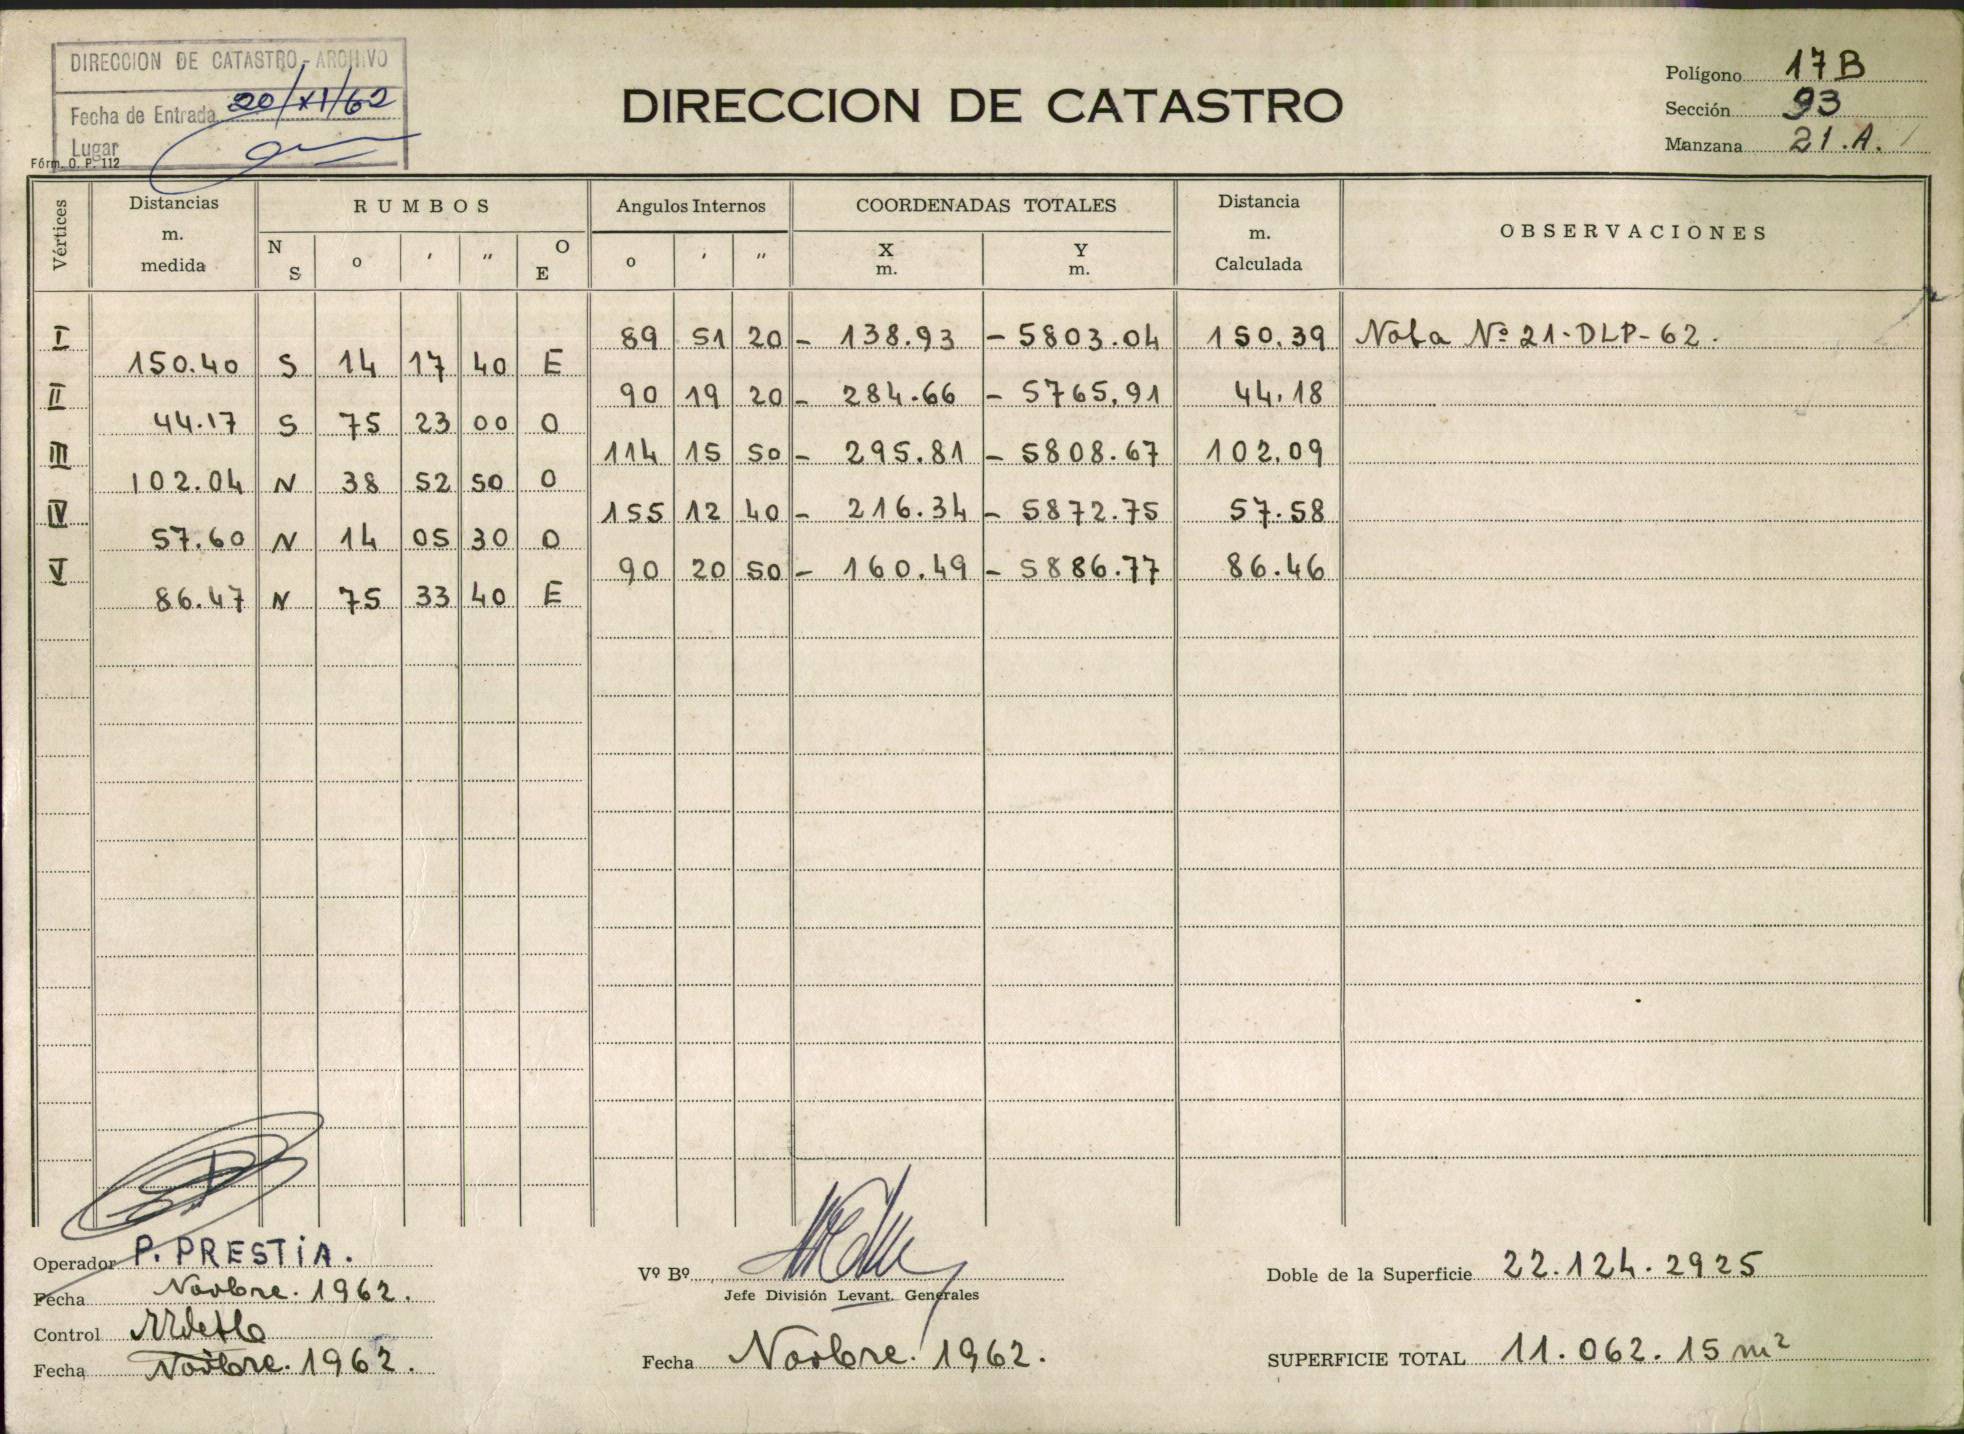 DIRECCION DE CATASTRO - ARCHIVO
Fecha de Entrada 20/XI/62
Lugar
Fórm. O. P. 112
DIRECCION DE CATASTRO
Polígono 17B
Sección 93
Manzana 21.A.
Vértices
Distancias m. medida
RUMBOS
N S o ' " O E
Angulos Internos
o ' "
COORDENADAS TOTALES
X m. Y m.
Distancia m. Calculada
OBSERVACIONES
I 89 51 20 - 138.93 - 5803.04 150.39 Nota Nº 21-DLP-62.
150.40 S 14 17 40 E
II 90 19 20 - 284.66 - 5765.91 44.18
44.17 S 75 23 00 O
III 114 15 50 - 295.81 - 5808.67 102.09
102.04 N 38 52 50 O
IV 155 12 40 - 216.34 - 5872.75 57.58
57.60 N 14 05 30 O
V 90 20 50 - 160.49 - 5886.77 86.46
86.47 N 75 33 40 E
Operador P. PRESTiA.
Fecha Novbre. 1962.
Control
Fecha Novbre. 1962.
Vº Bº
Jefe División Levant. Generales
Fecha Novbre. 1962.
Doble de la Superficie 22.124.2925
SUPERFICIE TOTAL 11.062.15 m²